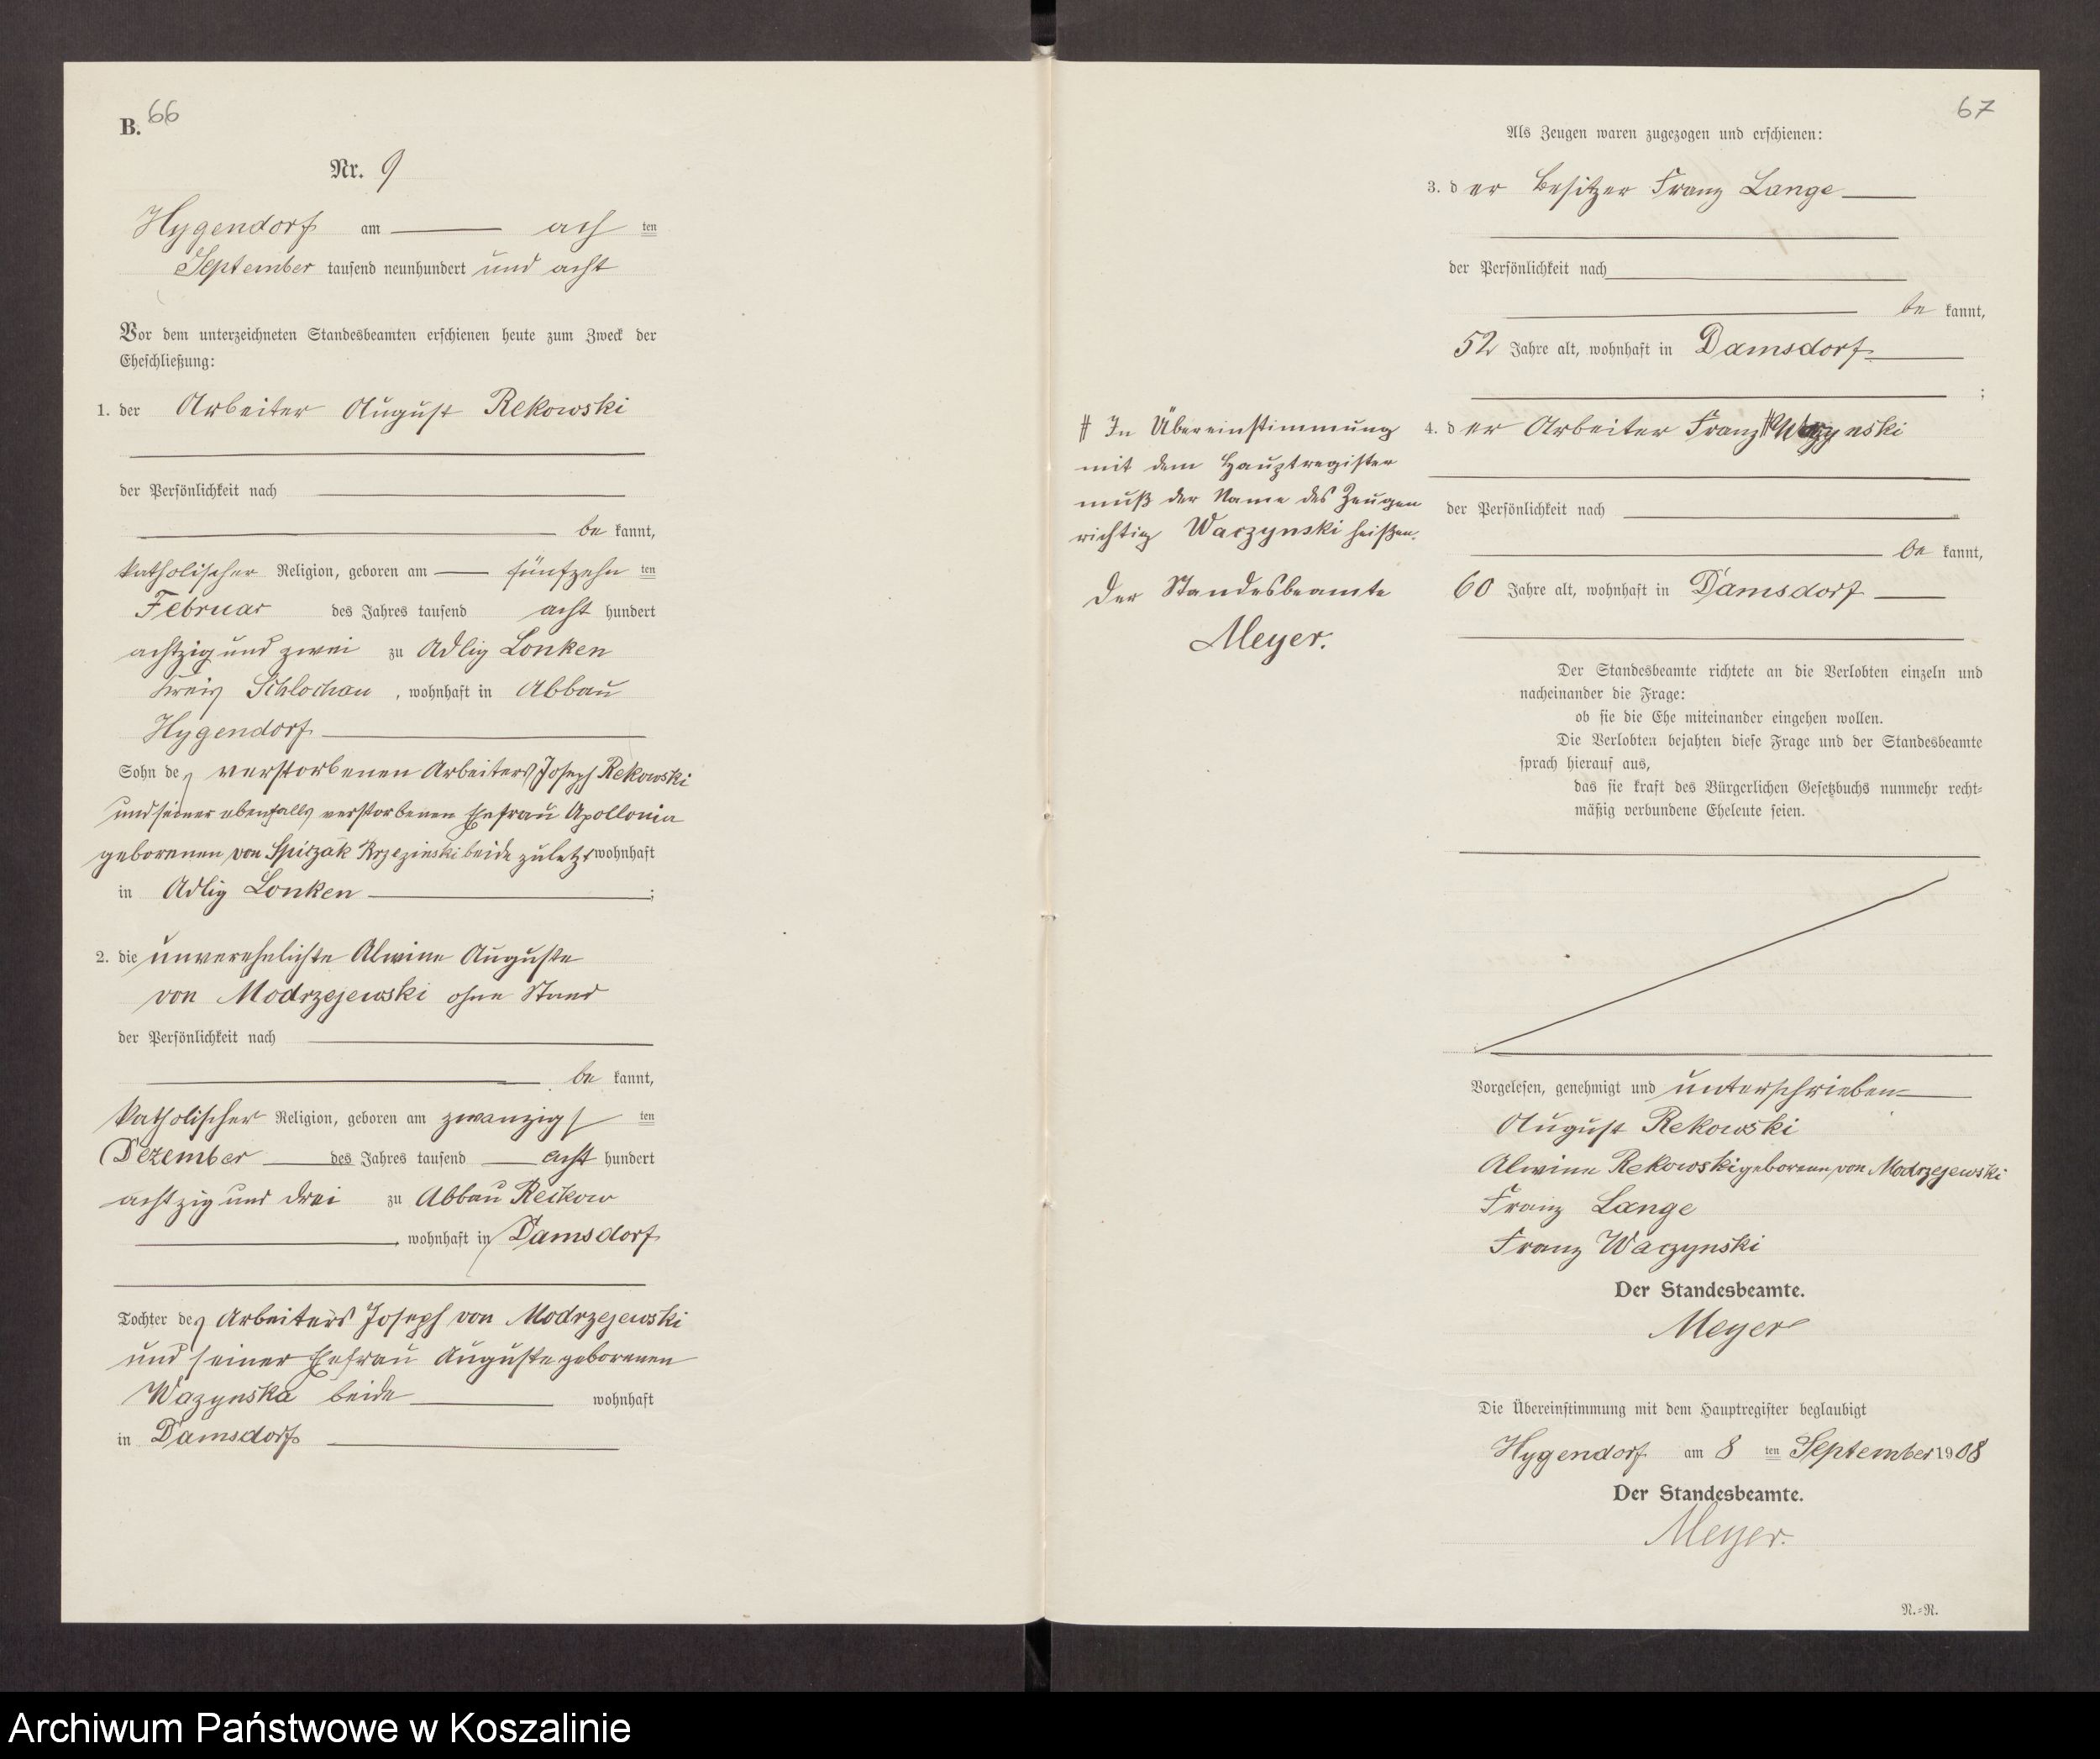 B. 66
Nr. 9
Hygendorf am ach ten
September tausend neunhundert und acht
Vor dem unterzeichneten Standesbeamten erschienen heute zum Zweck der
Eheschließung:
1. der Arbeiter August Rekowski
der Persönlichkeit nach
be kannt,
katholischer Religion, geboren am fünfzehn ten
Februar des Jahres tausend acht hundert
achtzig und zwei zu Adlig Lonken
Kreis Schlochau, wohnhaft in Abbau
Hygendorf
Sohn des verstorbenen Arbeiters Joseph Rekowski
und seiner ebenfalls verstorbenen Ehefrau Apollonia
geborenen von Spiczak Brzezinski beide zuletzt wohnhaft
in Adlig Lonken ;
2. die unverehelichte Alwine Auguste
von Modrzejewski ohne Stand
der Persönlichkeit nach
be kannt,
katholischer Religion, geboren am zwanzigs ten
Dezember des Jahres tausend acht hundert
achtzig und drei zu Abbau Reckow
, wohnhaft in Damsdorf
Tochter des Arbeiters Joseph von Modrzejewski
und seiner Ehefrau Auguste geborenen
Wazynska beide wohnhaft
in Damsdorf
67
Als Zeugen waren zugezogen und erschienen:
3. der Besitzer Franz Lange
der Persönlichkeit nach
be kannt,
52 Jahre alt, wohnhaft in Damsdorf
;
4. der Arbeiter Franz # Wazynski
der Persönlichkeit nach
be kannt,
60 Jahre alt, wohnhaft in Damsdorf
# In Übereinstimmung
mit dem Hauptregister
muß der Name des Zeugen
richtig Waczynski heißen.
Der Standesbeamte
Meyer.
Der Standesbeamte richtete an die Verlobten einzeln und
nacheinander die Frage:
ob sie die Ehe miteinander eingehen wollen.
Die Verlobten bejahten diese Frage und der Standesbeamte
sprach hierauf aus,
das sie kraft des Bürgerlichen Gesetzbuchs nunmehr recht=
mäßig verbundene Eheleute seien.
Vorgelesen, genehmigt und unterschrieben
August Rekowski
Alwine Rekowski geborene von Modrzejewski
Franz Lange
Franz Waczynski
Der Standesbeamte.
Meyer
Die Übereinstimmung mit dem Hauptregister beglaubigt
Hygendorf am 8 ten September 1908
Der Standesbeamte.
Meyer.
N.=R.
Archiwum Państwowe w Koszalinie